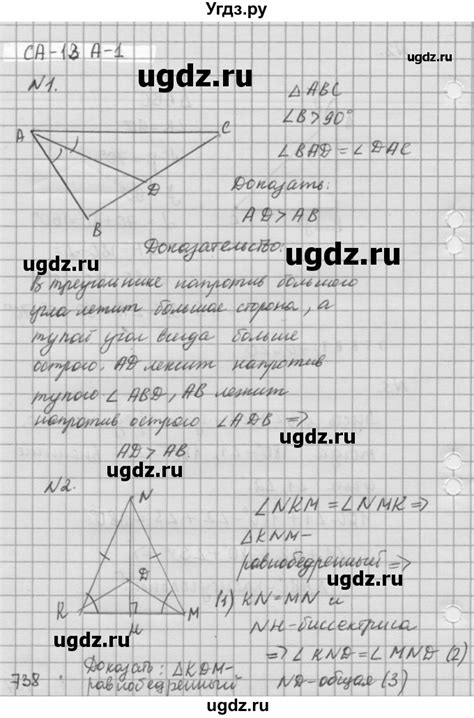 Угдз.ру
СА-13 А-1
ugdz.ru
N1.
ΔABC
∠B>90°
∠BAD=∠DAC
Доказать:
AD>AB
A
C
D
B
ugdz.ru
Доказательство:
ugdz.ru
ugdz.ru
В треугольнике напротив большего
угла лежит большая сторона, а
тупой угол всегда больше
острого. AD лежит напротив
ugdz.ru
тупого ∠ABD, AB лежит
напротив острого ∠ADB ⇒
ugdz.ru
AD>AB.
ugdz.ru
N2.
N
D
K
M
H
∠NKM=∠NMK⇒
ΔKNM-
равнобедренный ⇒
ugdz.ru
(1) KN=MN и
NH-биссектриса
⇒∠KND=∠MND (2)
ND-общая (3)
ugdz.ru
738
Доказать: ΔKDM-
равнобедренный
ugdz.ru